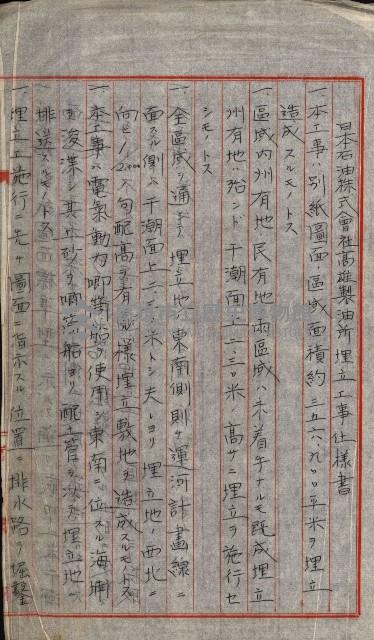 日本石油株式會社高雄製油所埋立工事仕様書
一、本工事ハ別紙圖面ノ區域面積約三五六、九〇〇平米ヲ埋立
造成スルモノトス
一、區域内州有地、民有地兩區域ハ未着手ナルモ既成埋立
州有地ハ殆ンド干潮面上二、三〇米ノ高サニ埋立ヲ施行セ
シモノトス
一、全區域ヲ通ジ埋立地ハ東南側則チ運河計畫線ニ
面スル側ハ干潮面上二、三〇米トシ夫レヨリ埋立地ノ西北ニ
向ヒ1/2000ノ勾配高ヲ有スル様埋立敷地ヲ造成スルモノトス
一、本工事ハ電氣動力唧筒船ヲ使用シ東南ニ位スル海
ヲ浚渫シ其土砂ヲ唧筒船ヨリ配土管ヲ以テ埋立地ニ
排送スルモノトス
一、埋立工施行ニ先チ圖面ニ指示スル位置ニ排水路ヲ掘鑿